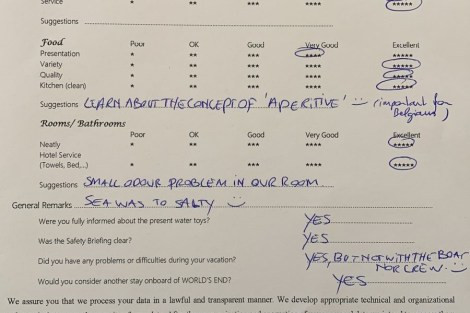 Service * ** *** **** *****
Suggestions
Food Poor OK Good Very Good Excellent
Presentation * ** *** **** *****
Variety * ** *** **** *****
Quality * ** *** **** *****
Kitchen (clean) * ** *** **** *****
Suggestions LEARN ABOUT THE CONCEPT OF 'APERITIVE' (important for
Belgians)
Rooms/ Bathrooms
Poor OK Good Very Good Excellent
Neatly * ** *** **** *****
Hotel Service
(Towels, Bed,..) * ** *** **** *****
Suggestions SMALL ODOUR PROBLEM IN OUR ROOM
General Remarks SEA WAS TO SALTY
Were you fully informed about the present water toys? YES
Was the Safety Briefing clear? YES
Did you have any problems or difficulties during your vacation? YES, BUT NOT WITH THE BOAT
NOR CREW
Would you consider another stay onboard of WORLD'S END? YES
We assure you that we process your data in a lawful and transparent manner. We develop appropriate technical and organizational